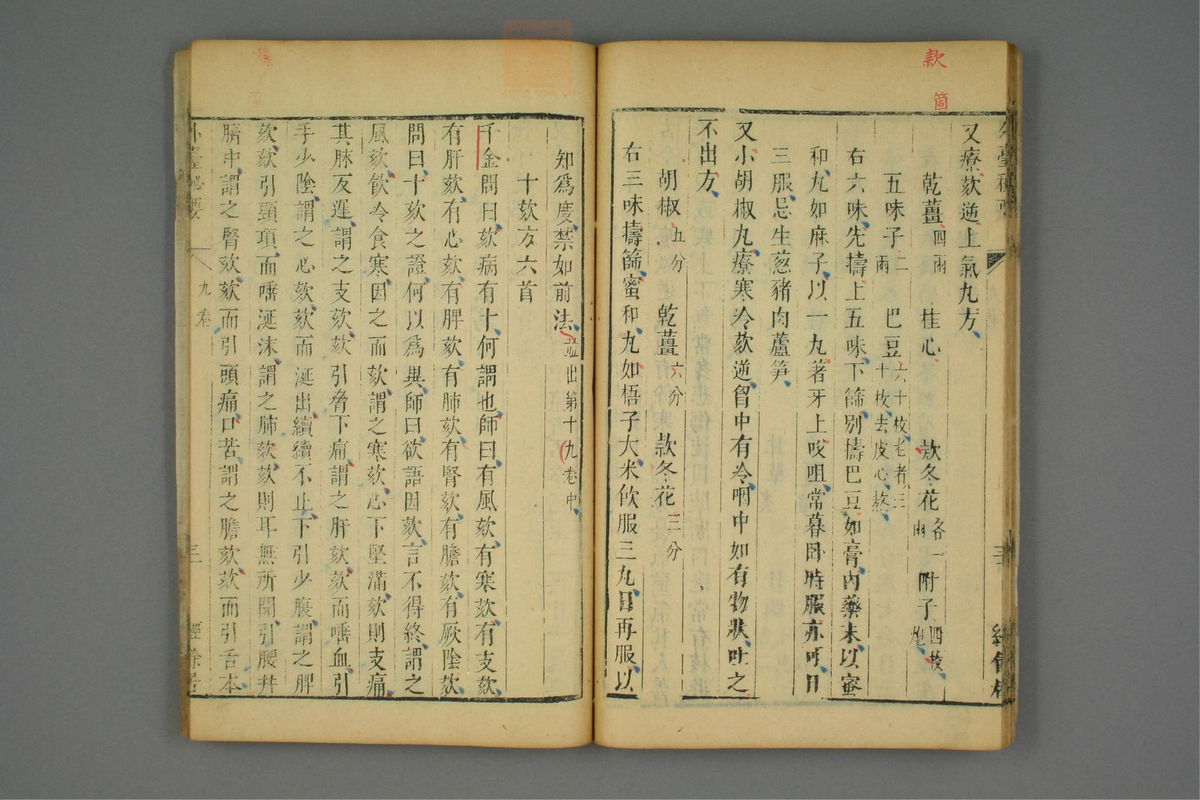 款
箇
又療欬逆上氣丸方
乾薑四兩 桂心 款冬花各一兩 附子四枚炮
五味子二兩 巴豆六十枚老者三十枚去皮心熬
右六味先擣上五味下篩別擣巴豆如膏內藥末以蜜
和丸如麻子以一丸著牙上咬咀常暮臥時服亦可日
三服忌生葱豬肉蘆笋
又小胡椒丸療寒冷欬逆胷中有冷咽中如有物狀吐之
不出方
胡椒五分 乾薑六分 款冬花三分
右三味擣篩蜜和丸如梧子大米飲服三丸日再服以
知爲度禁如前法並出第十九卷中
十欬方六首
千金問曰欬病有十何謂也師曰有風欬有寒欬有支欬
有肝欬有心欬有脾欬有肺欬有腎欬有膽欬有厥陰欬
問曰十欬之證何以爲異師曰欲語因欬言不得終謂之
風欬飲冷食寒因之而欬謂之寒欬心下堅滿欬則支痛
其脉反遲謂之支欬欬引脅下痛謂之肝欬欬而唾血引
手少陰謂之心欬欬而涎出續續不止下引少腹謂之脾
欬欬引頸項而唾涎沫謂之肺欬欬則耳無所聞引腰并
臍中謂之腎欬欬而引頭痛口苦謂之膽欬欬而引舌本
外臺秘要 九卷 三 經餘居